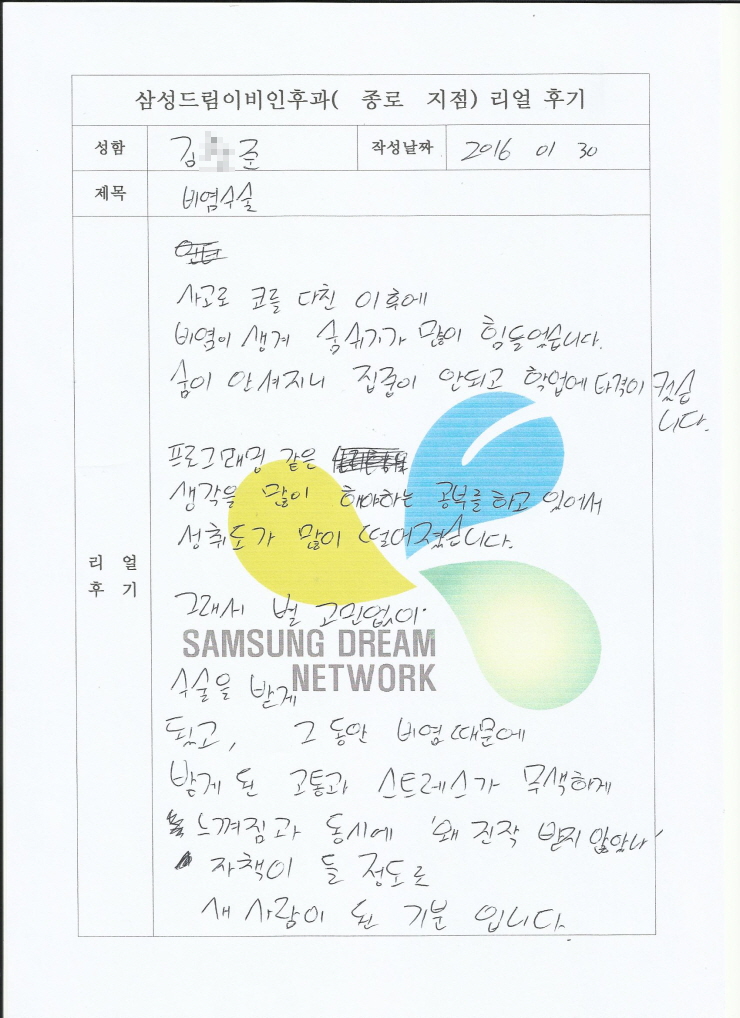 삼성드림이비인후과( 종로 지점) 리얼 후기
성함 김 준 작성날짜 2016 01 30
제목 비염수술
사고로 코를 다친 이후에
비염이 생겨 숨쉬기가 많이 힘들었습니다.
숨이 안셔지니 집중이 안되고 학업에 타격이 컸습
니다.
프로그래밍 같은
생각을 많이 해야하는 공부를 하고 있어서
성취도가 많이 떨어졌습니다.
리 얼
후 기
그래서 별 고민없이
SAMSUNG DREAM
NETWORK
수술을 받게
됬고, 그 동안 비염때문에
받게 된 고통과 스트레스가 무색하게
느껴짐과 동시에 '왜 진작 받지 않았나'
자책이 들 정도로
새 사람이 된 기분 입니다.